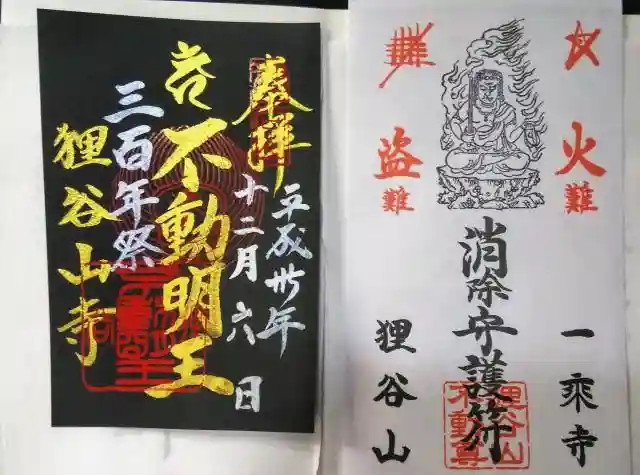 奉拝
平成卅年
十二月六日
谷不動明王
三百年祭
狸谷山寺
火難
盗難
消除守護符
一乗寺
狸谷山
狸谷山
不動尊